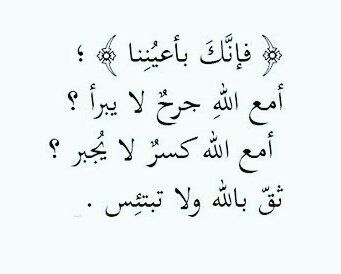 ﴿ فإنَّكَ بأعيُنِنا ﴾ ؛
أمع اللهِ جرحٌ لا يبرأ ؟
أمع الله كسرٌ لا يُجبر ؟
ثقّ بالله ولا تبتئِس .